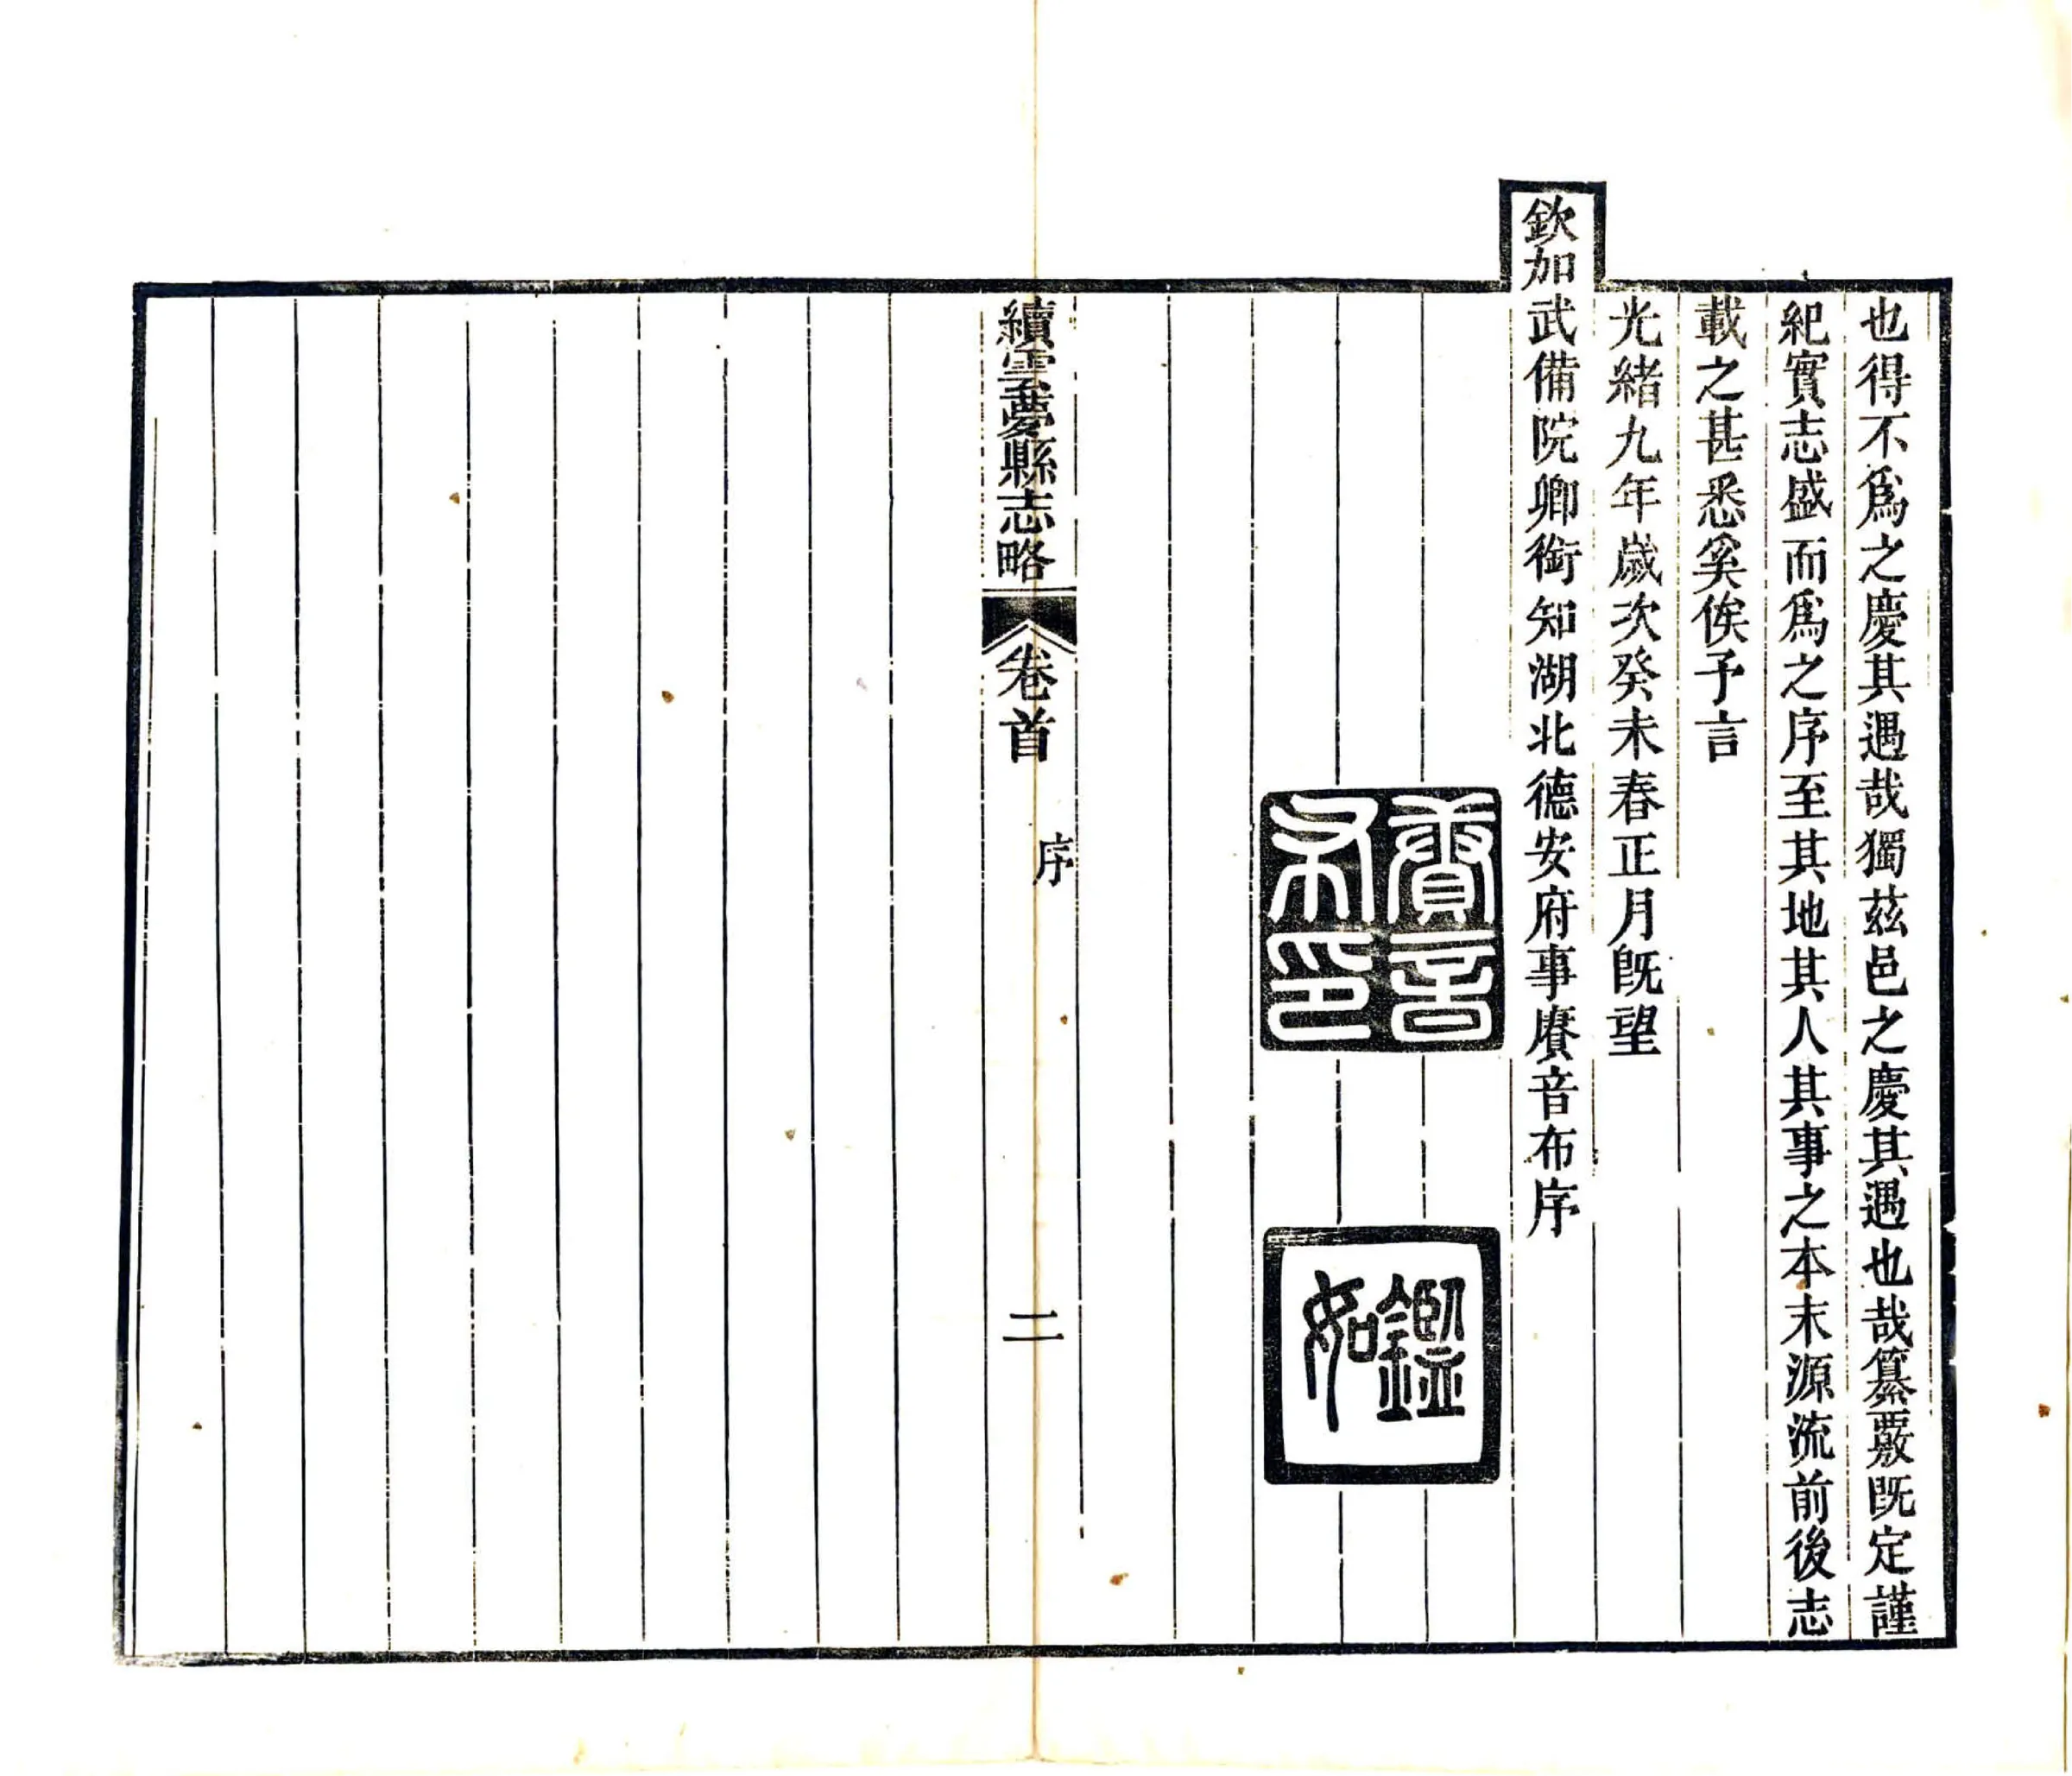 也得不爲之慶其遇哉獨茲邑之慶其遇也哉纂覈既定謹
紀實志盛而爲之序至其地其人其事之本末源流前後志
載之甚悉奚俟予言
光緒九年歲次癸未春正月既望
欽加武備院卿銜知湖北德安府事賡音布序
賡音
布印
鑑如
續雲夢縣志略 卷首 序 二